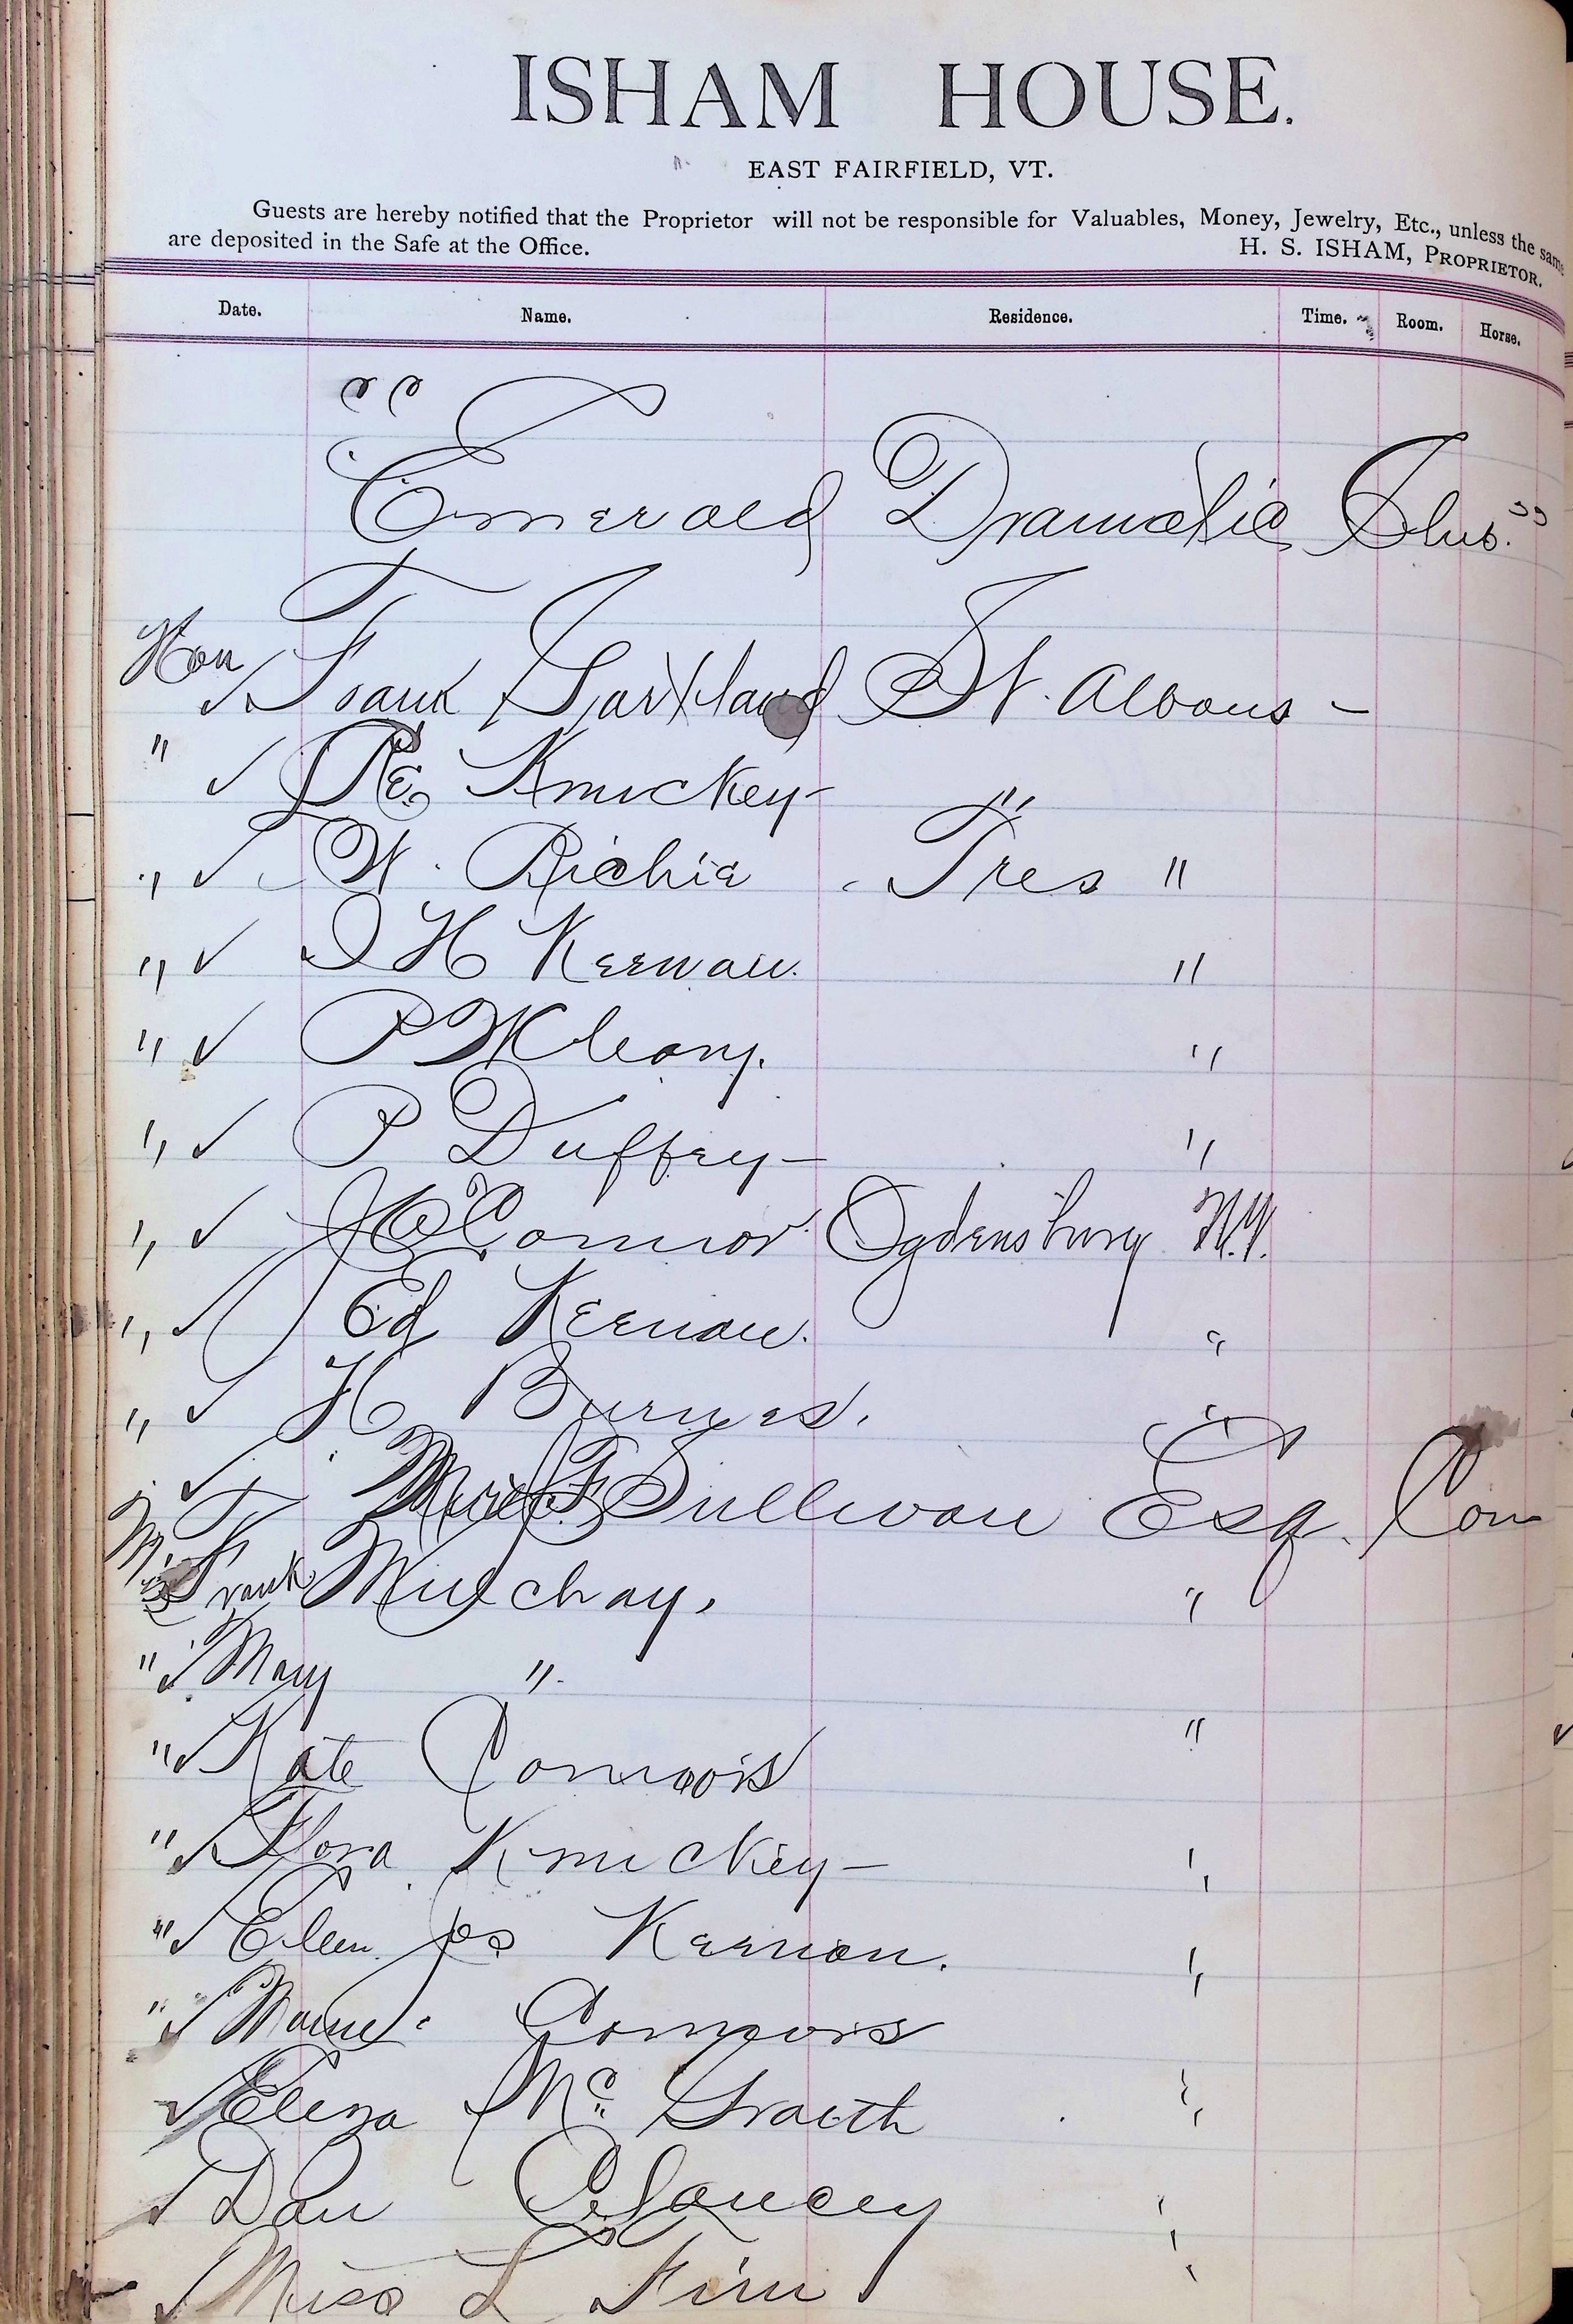 ISHAM HOUSE.
EAST FAIRFIELD, VT.
Guests are hereby notified that the Proprietor will not be responsible for Valuables, Money, Jewelry, Etc., unless the same
are deposited in the Safe at the Office. H. S. ISHAM, PROPRIETOR.
Date. Name. Residence. Time. Room. Horse.
"Emerald Dramatic Club."
Hon ✓ Frank Gartland St. Albans -
" ✓ Knuckey -
" ✓ W. Richie Tres "
" ✓ H Keenan. "
" ✓ P Cleary. "
" ✓ P Duffey - "
" ✓ J O'Connor Ogdensburg N.Y.
" ✓ Ed Keenan. "
" ✓ H Burnes. "
✓ Sullivan Esq. Com
✓ Frank Mulchay, "
" ✓ Mary "
" ✓ Kate Connors "
" ✓ Flora Knuckey - "
" ✓ Ellen Keenan. "
" ✓ Mame Connors "
✓ Eliza Mc Graith "
✓ Dan Clancey "
✓ Miss L Finn "